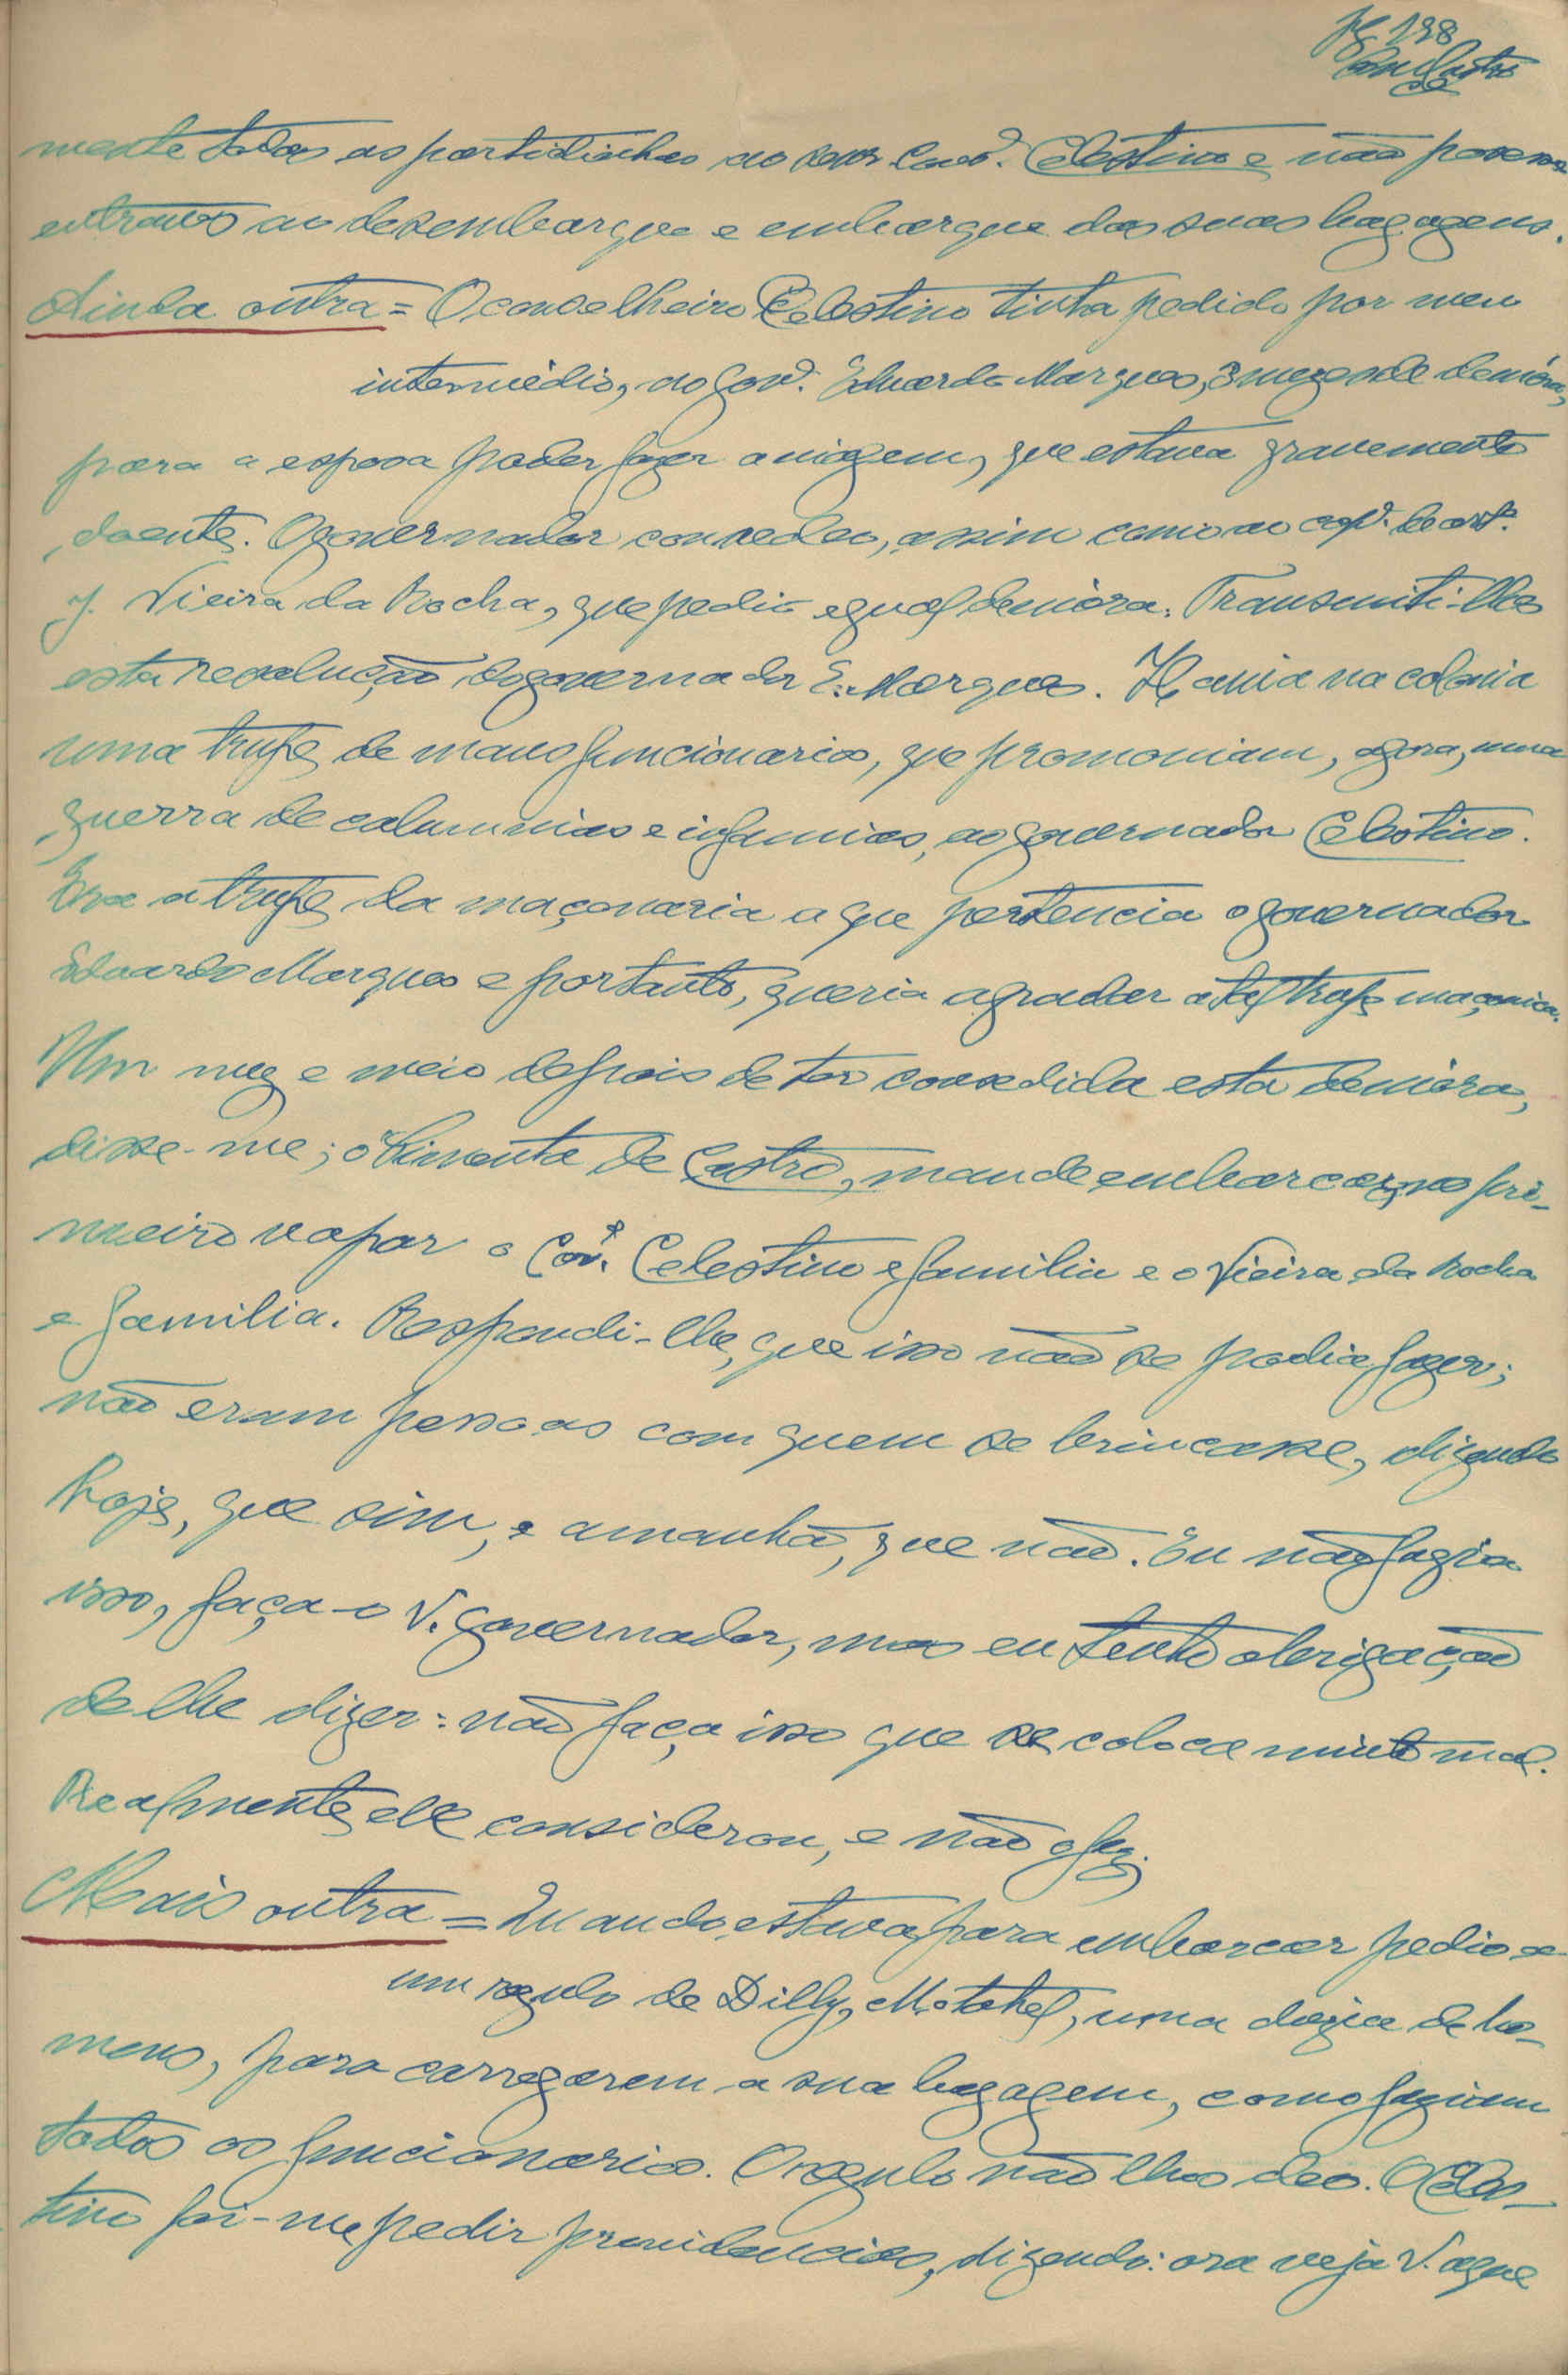 fg 198
mente todas as partidinhas ao Cons.º Celestino e não pozesse
entraves ao desembarque e embarque das suas bagagens.
Ainda outra = O conselheiro Celestino tinha pedido por meu
intermédio, ao Gov.ºr Eduardo Marques, 3 mezes de demóra,
para a esposa poder fazer a viagem, que estava gravemente
doente. O governador concedeo, assim como ao cap.m de art.ª
J. Vieira da Rocha, que pedio egual demóra. Transmiti-lhes
esta resolução do governador E. Marques. Havia na colonia
uma trupe de maus funcionarios, que promoviam, agora, uma
guerra de calumnias e infamias, ao governador Celestino.
Era a trupe da maçonaria a que pertencia o governador
Eduardo Marques e portanto, queria agradar á tal trupe maçonica.
Um mez e meio depois de ter concedida esta demóra,
disse-me; ó Pimenta de Castro, mande embarcar, no pri-
meiro vapor o Con.º Celestino e familia e o Vieira da Rocha
e familia. Respondi-lhe, que isso não se podia fazer;
não eram pessoas com quem se brincasse, dizendo
hoje, que sim, e amanhã, que não. Eu não fazia
isso, faça-o V. governador, mas eu tenho obrigação
de lhe dizer: não faça isso que se coloca muito mal.
Realmente elle considerou, e não o fez.
Mais outra = Quando estava para embarcar pedio a
um regulo de Dilly, Motahel, uma duzia de ho-
mens, para carregarem a sua bagagem, como faziam
todos os funcionarios. O regulo não lhos deo. O Celes-
tino foi-me pedir providencias, dizendo: ora veja V. a que